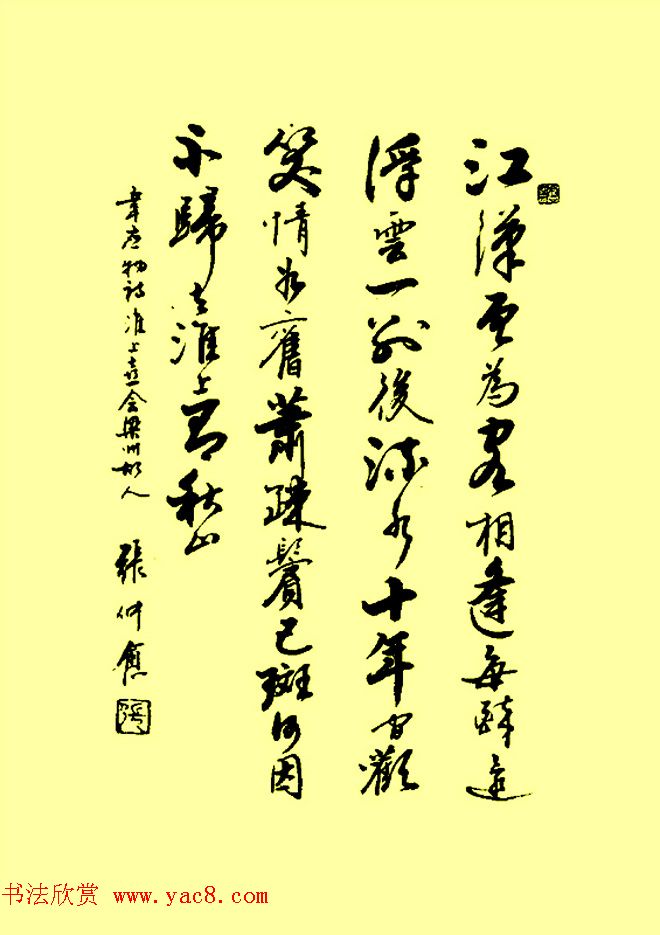 江漢曾為客相逢每醉還
浮雲一別後流水十年間歡
笑情如舊蕭疎鬢已斑何因
不歸去淮上有秋山
韋應物詩淮上喜会梁州故人
張仲愈
书法欣赏 www.yac8.com